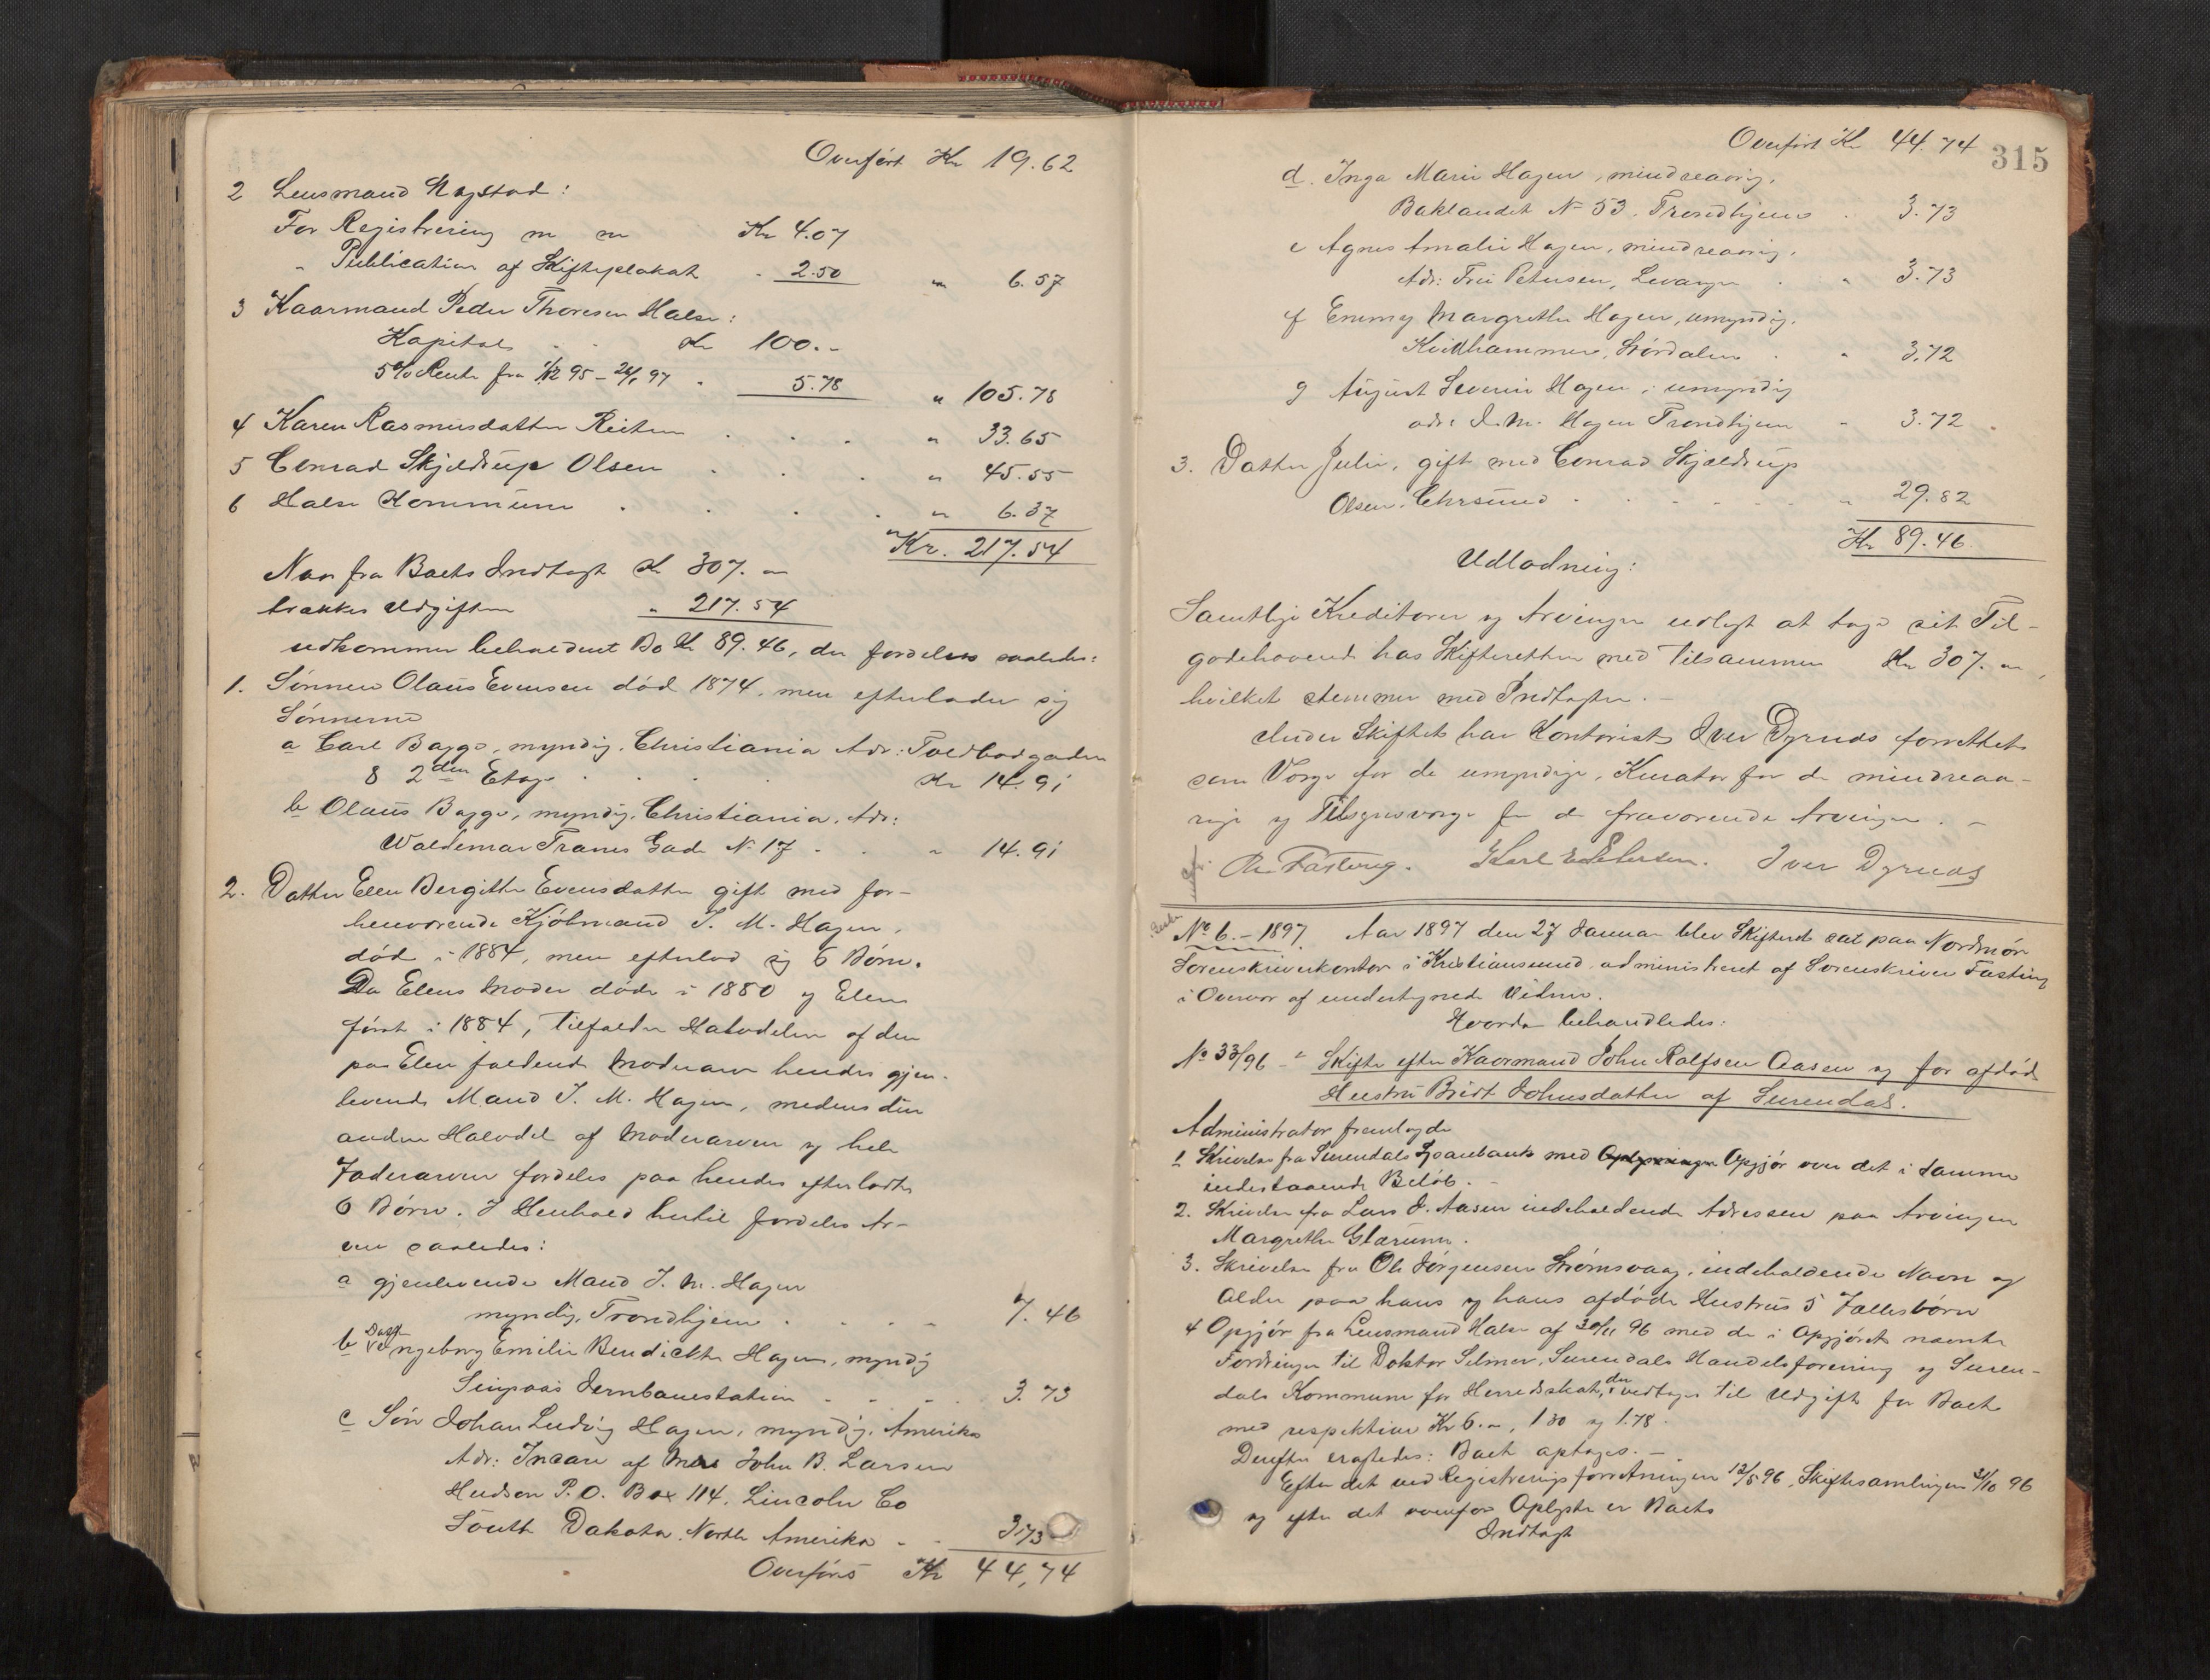 Overført Kr 19.62
2 Lensmand Magstad:
For Registrering m m Kr 4.07
" Publication af Skifteplakat " 2.50 " 6.57
3 Kaarmand Peder Thoresen Halse:
Kapital . . Kr 100.-
5% Rente fra 95 - 97 " 5.78 " 105.78
4 Karen Rasmusdatter . . . " 33.65
5 Conrad Skjeldrup Olsen . . " 45.55
6 Halse Kommune . . . . " 6.37
Kr. 217.54
Naar fra Boets Indtægt Kr 307. "
trækkes Udgiften " 217.54
udkommer beholdent Bo Kr 89.46, der fordeles saaledes:
1. Sønnen Olaus Evensen død 1874, men efterlader sig
Sønnerne
a Carl Bagge, myndig, Christiania Adr: Toldbodgaden
8 2den Etage . . . Kr 14.91
b Olaus Bagge, myndig, Christiania, Adr:
Waldemar Tranes Gade No 17 . . " 14.91
2. Datter Elen Bergitte Evensdatter gift med for-
henværende Kjøbmand J. M. Hagen,
død i 1884, men efterlod sig 6 Børn.
Da Elens Moder døde i 1880 og Elen
først i 1884, tilfalder Halvdelen af den
paa Elen faldende Modrearv hendes gjen-
levende Mand J. M. Hagen, medens den
anden Halvdel af Modrearven og hele
Fadrearven fordeles paa hendes efterladte
6 Børn. I Henhold hertil fordeles Ar-
ven saaledes:
a gjenlevende Mand J. M. Hagen
myndig, Trondhjem . . . . 7.46
b Datter Ingeborg Emilie Bendikte Hagen, myndig
Singsaas Jernbanestation . . . . 3.73
c Søn Johan Ludvig Hagen, myndig, Amerika
Adr: In care of Mrs John B. Larsen
Hudson P.O. Box 114. Lincoln Co
South Dakota, North Amerika . . 3.73
Overføres Kr 44,74
315
Overført Kr 44.74
d. Inga Marie Hagen, mindreaarig,
Baklandet No 53, Trondhjem . 3.73
e Agnes Amalie Hagen, mindreaarig,
Adr: Petersen, Levanger . " 3.73
f Emmy Margrethe Hagen, umyndig,
Kvithammer, Stördalen . " 3.72
g August Severin Hagen, umyndig
adr: J. M. Hagen Trondhjem " 3.72
3. Datter Julie, gift med Conrad Skjældrup
Olsen, Chrsund . . . . . " 29.82
Kr 89.46
Udlodning:
Samtlige Kreditorer og Arvinger udlagt at tage sit Til-
godehavende hos Skifteretten med tilsammen Kr 307. "
hvilket stemmer med Indtægten. -
Under Skiftet har Kontorist Iver Dyrnes forrettet
som Værge for de umyndige, Kurator for de mindreaa-
rige og Tilsynsværge for de fraværende Arvinger. -
Fasting. Karl Petersen. Iver Dyrnes
No 6. - 1897. Aar 1897 den 27 Januar blev Skifteret sat paa Nordmør
Sorenskriverkontor i Kristiansund, administreret af Sorenskriver Fasting
i Overvær af undertegnede Vidner.
Hvorda behandledes:
No 33/96 - Skifte efter Kaarmand John Rolfsen Aasen og før afdød
Hustru Brit Johnsdatter af Surendal.
Administrator fremlagde
1 Skrivelse fra Surendals Sparebank med Opgjør over det i samme
indestaaende Beløb. -
2. Skrivelse fra Lars J. Aasen indeholdende Adressen paa Arvingen
Margrethe Glærum.
3. Skrivelse fra Ole Jørgensen Strømsvaag, indeholdende Navn og
Alder paa hans og hans afdøde Hustrus 5 Fællesbørn
4 Opgjør fra Lensmand Halse af 30/11 96 med de i Opgjøret nævnte
Fordringer til Doktor Selmer, Surendals Handelsforening og Suren-
dals Kommune for Herredsskat, der vedtages til Udgift for Boet
med respektive Kr 6. ", 1.30 og 1.78.
Derefter eragtedes: Boet optages. -
Efter det ved Registreringsforretningen 12/5 96, Skiftesamlingen 21/10 96
og efter det ovenfor Oplyste er Boets
Indtægt